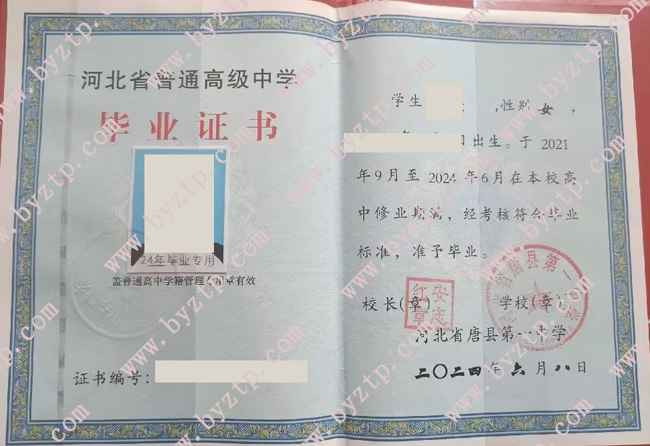 河北省普通高级中学
毕业证书
24年毕业专用
盖普通高中学籍管理专用章有效
证书编号:
学生 ,性别 女 ,
日出生。于 2021
年9月至 2024 年6月在本校高
中修业期满,经考核符合毕业
标准,准予毕业。
校长(章)
安志
红章
学校(章)
省唐县第一
河北省唐县第一中学
二〇二四年六月八日
www.byztp.com